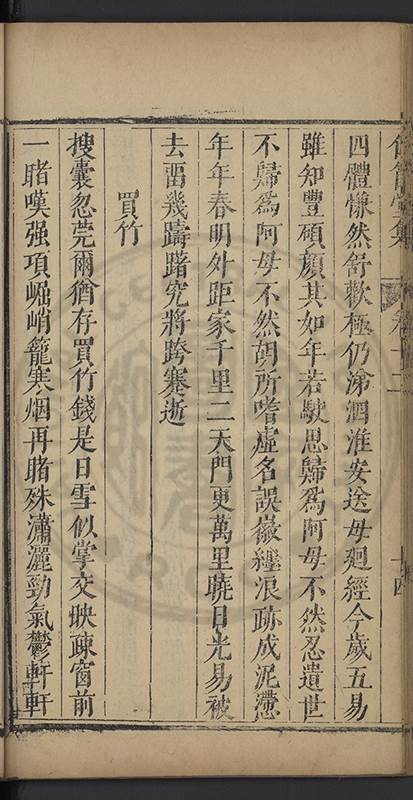 四體慊然舒歡極仍涕泗淮安送母廻經今歲五易
雖知豐碩顏其如年若駛思歸為阿母不然忍遺世
不歸為阿母不然胡所嗜虛名誤嶽纏浪跡成泥滯
年年春明外距家千里二天門更萬里曉日光易被
去留幾躊躇究將跨蹇逝
買竹
搜囊忽莞爾猶存買竹錢是日雪似掌交映疎窗前
一睹嘆强項崛峭籠寒烟再睹殊瀟灑勁氣鬱軒軒